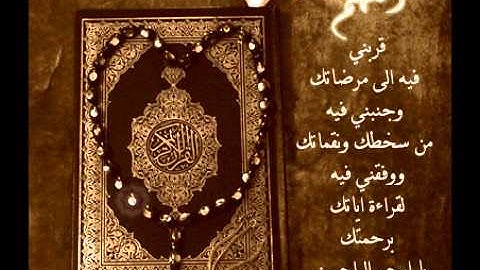 قربني
فيه الى مرضاتك
وجنبني فيه
من سخطك ونقماتك
ووفقني فيه
لقراءة اياتك
برحمتّك
يا ارحم الراحمين